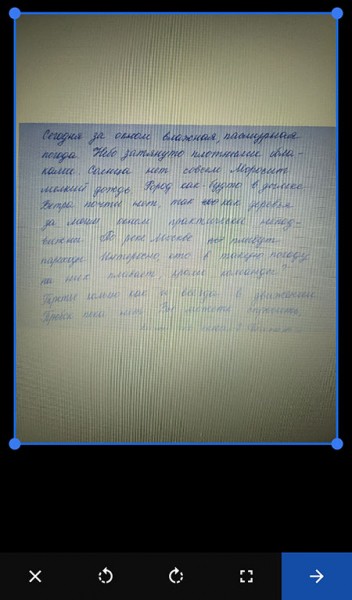 Сегодня за окном влажная, пасмурная
погода. Небо затянуто плотными обла-
ками. Солнца нет совсем. Моросит
мелкий дождь. Город как-будто в дымке
Ветра почти нет, так что деревья
за моим окном практически непод-
вижны. По реке Москве плывут
пароходы. Интересно, кто в такую погоду
на них плавает, кроме команды?
как и всегда в движении
Пробок пока нет.